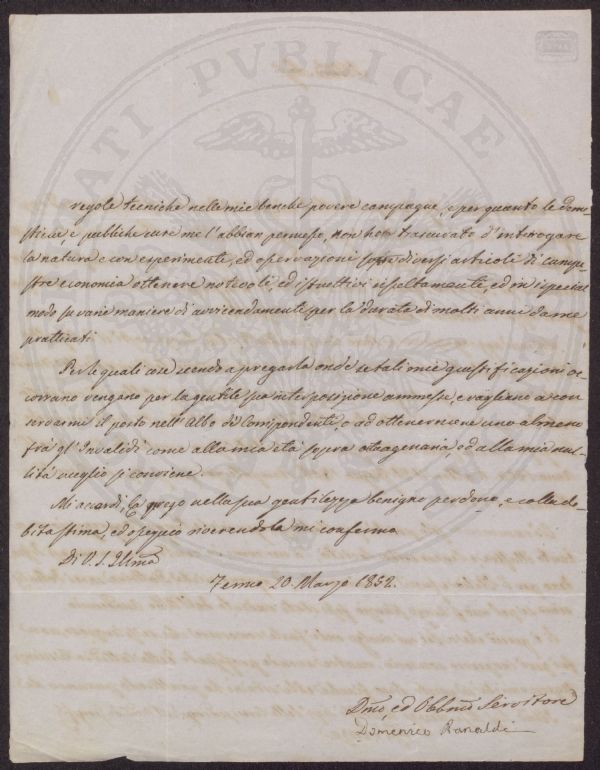 PVBLICAE
regole tecniche nelle mie benchè povere campagne, e per quanto le dome-
stiche, e pubbliche cure me l'abbian permesso, non ho trascurato d'interogare
la natura e con esperimenti, ed osservazione sopra diversi articoli di campe-
stre economia ottenere notevoli, ed istruttivi risultamenti, ed in special
modo su varie maniere di avvicendamenti per la durata di molti anni da me
pratticati.
Per le quali cose scendo a pregarla onde se tali mie giustificazioni oc-
corrano vengano per la gentile sua interposizione ammesse, e vagliano a con-
servarmi il posto nell'Albo di Corrispondenti, o ad ottenermene uno almeno
frà gl'Invalidi come alla mia età sopra ottuagenaria ed alla mia nul-
lità meglio si conviene.
Mi accordi, La prego nella sua gentilezza benigno perdono, e colla de-
bita stima, ed ossequio riverendola mi confermo
Di V. S. Illma
Fermo 20. Marzo 1852.
Dmo, ed Obbmo Servitore
Domenico Ranaldi